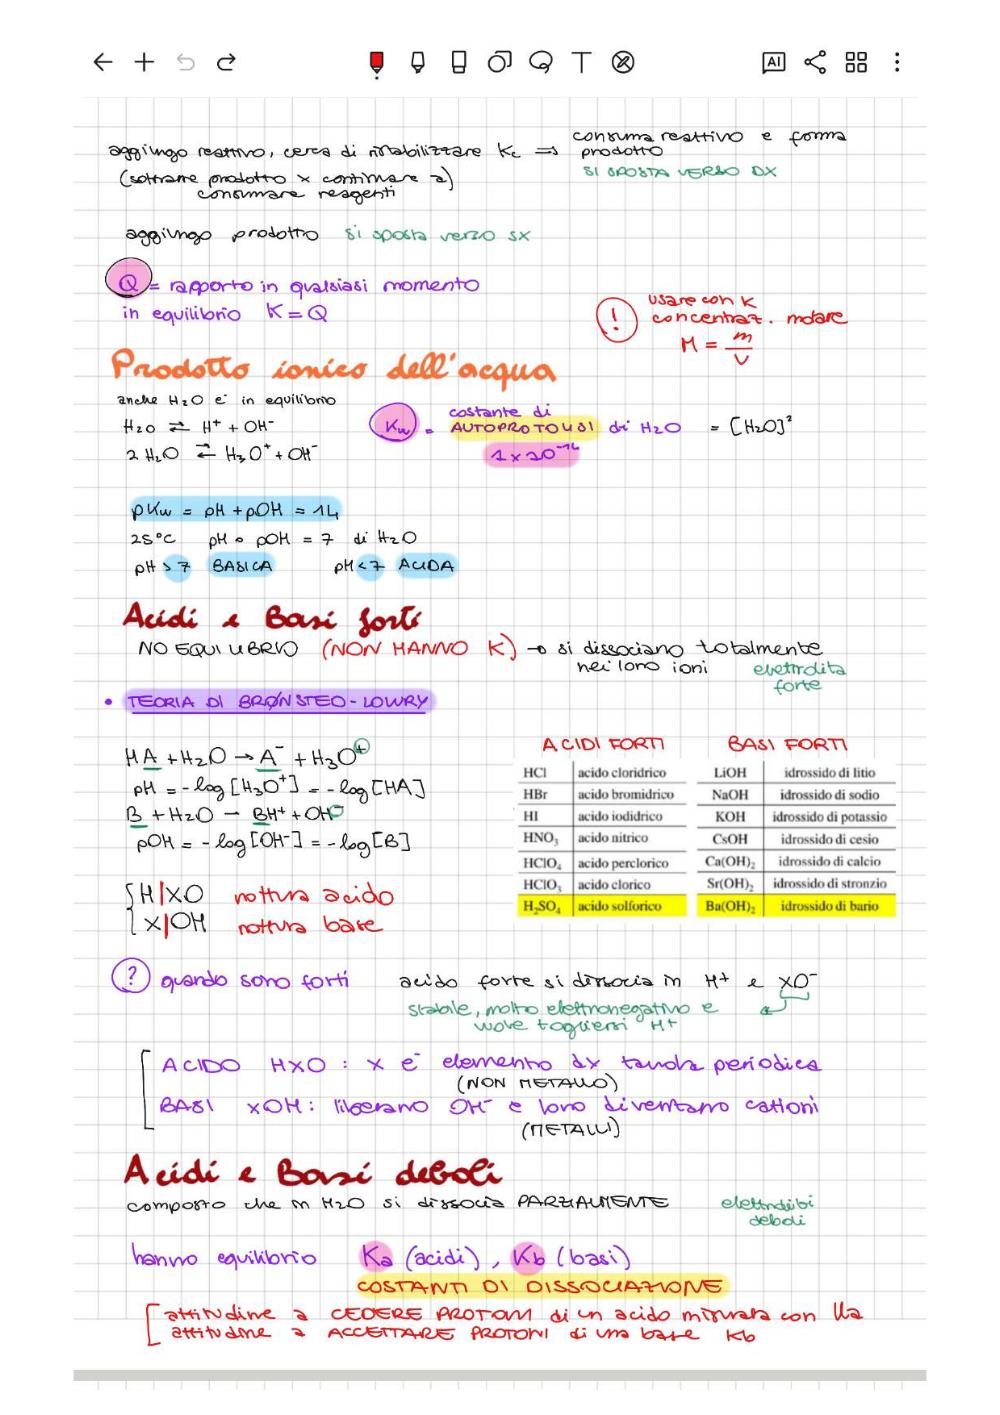 AI
aggiungo reattivo, cerca di ristabilizzare Kc => consuma reattivo e forma prodotto
(sottrarre prodotto x continuare a) SI SPOSTA VERSO DX
consumare reagenti
aggiungo prodotto si sposta verso sx
Q = rapporto in qualsiasi momento
in equilibrio K = Q
! usare con K
concentraz. molare
M = m/V
Prodotto ionico dell'acqua
anche H2O e' in equilibrio
H2O ⇄ H+ + OH-
2 H2O ⇄ H3O+ + OH-
Kw = costante di
AUTOPROTOLISI di H2O = [H2O]²
1 x 10^-14
pKw = pH + pOH = 14
25°C pH o pOH = 7 di H2O
pH > 7 BASICA pH < 7 ACIDA
Acidi e Basi forti
NO EQUILIBRIO (NON HANNO K) → si dissociano totalmente
nei loro ioni
elettrolita
forte
• TEORIA DI BRØNSTED-LOWRY
HA + H2O → A- + H3O+
pH = -log [H3O+] = -log [HA]
B + H2O → BH+ + OH-
pOH = -log [OH-] = -log [B]
{ H|XO rottura acido
X|OH rottura base
ACIDI FORTI
HCl acido cloridrico
HBr acido bromidrico
HI acido iodidrico
HNO3 acido nitrico
HClO4 acido perclorico
HClO3 acido clorico
H2SO4 acido solforico
BASI FORTI
LiOH idrossido di litio
NaOH idrossido di sodio
KOH idrossido di potassio
CsOH idrossido di cesio
Ca(OH)2 idrossido di calcio
Sr(OH)2 idrossido di stronzio
Ba(OH)2 idrossido di bario
? quando sono forti acido forte si dissocia in H+ e XO-
stabile, molto elettronegativo e
vuole togliersi H+
ACIDO HXO : X e' elemento dx tavola periodica
(NON METALLO)
BASI XOH : liberano OH- e loro diventano cationi
(METALLI)
Acidi e Basi deboli
composto che in H2O si dissocia PARZIALMENTE
deboli
hanno equilibrio Ka (acidi), Kb (basi)
COSTANTI DI DISSOCIAZIONE
[ attitudine a CEDERE PROTONI di un acido misurata con Ka
attitudine a ACCETTARE PROTONI di una base Kb